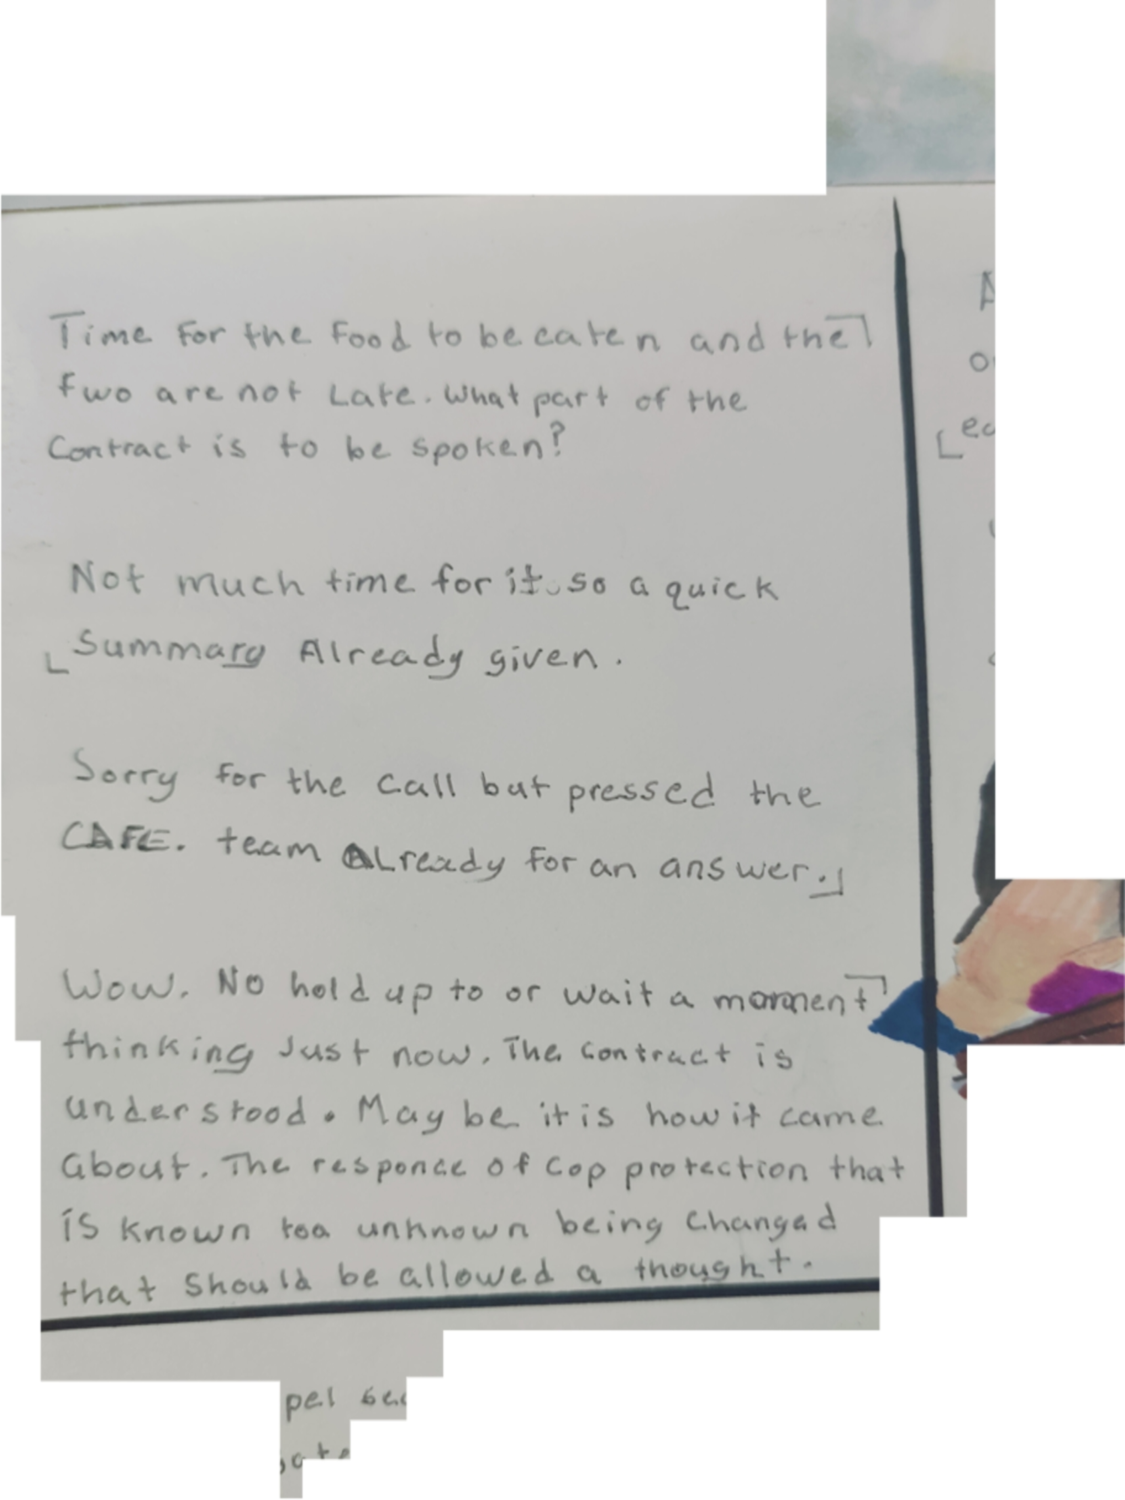 Time For the Food to be eaten and the
two are not Late. What part of the
Contract is to be spoken?
Not much time for it. so a quick
Summary Already given.
Sorry for the call but pressed the
CAFE. team ALready for an answer.
Wow. No hold up to or wait a moment
thinking Just now. The contract is
understood. May be it is how it came
about. The responce of Cop protection that
is known too unknown being changed
that should be allowed a thought.
pel